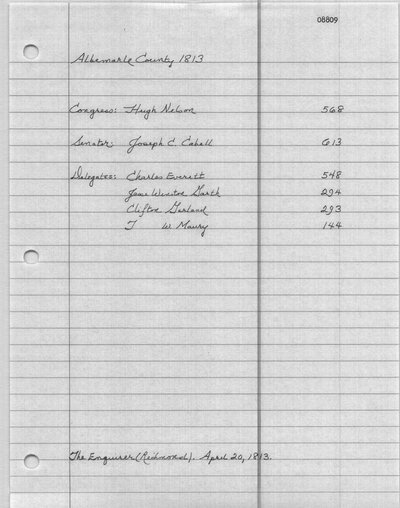 08809
Albemarle County 1813
Congress: Hugh Nelson 568
Senator: Joseph C. Cabell 613
Delegates: Charles Everett 548
Jesse Winston Garth 294
Clifton Garland 293
T W Maury 144
The Enquirer (Richmond). April 20, 1813.